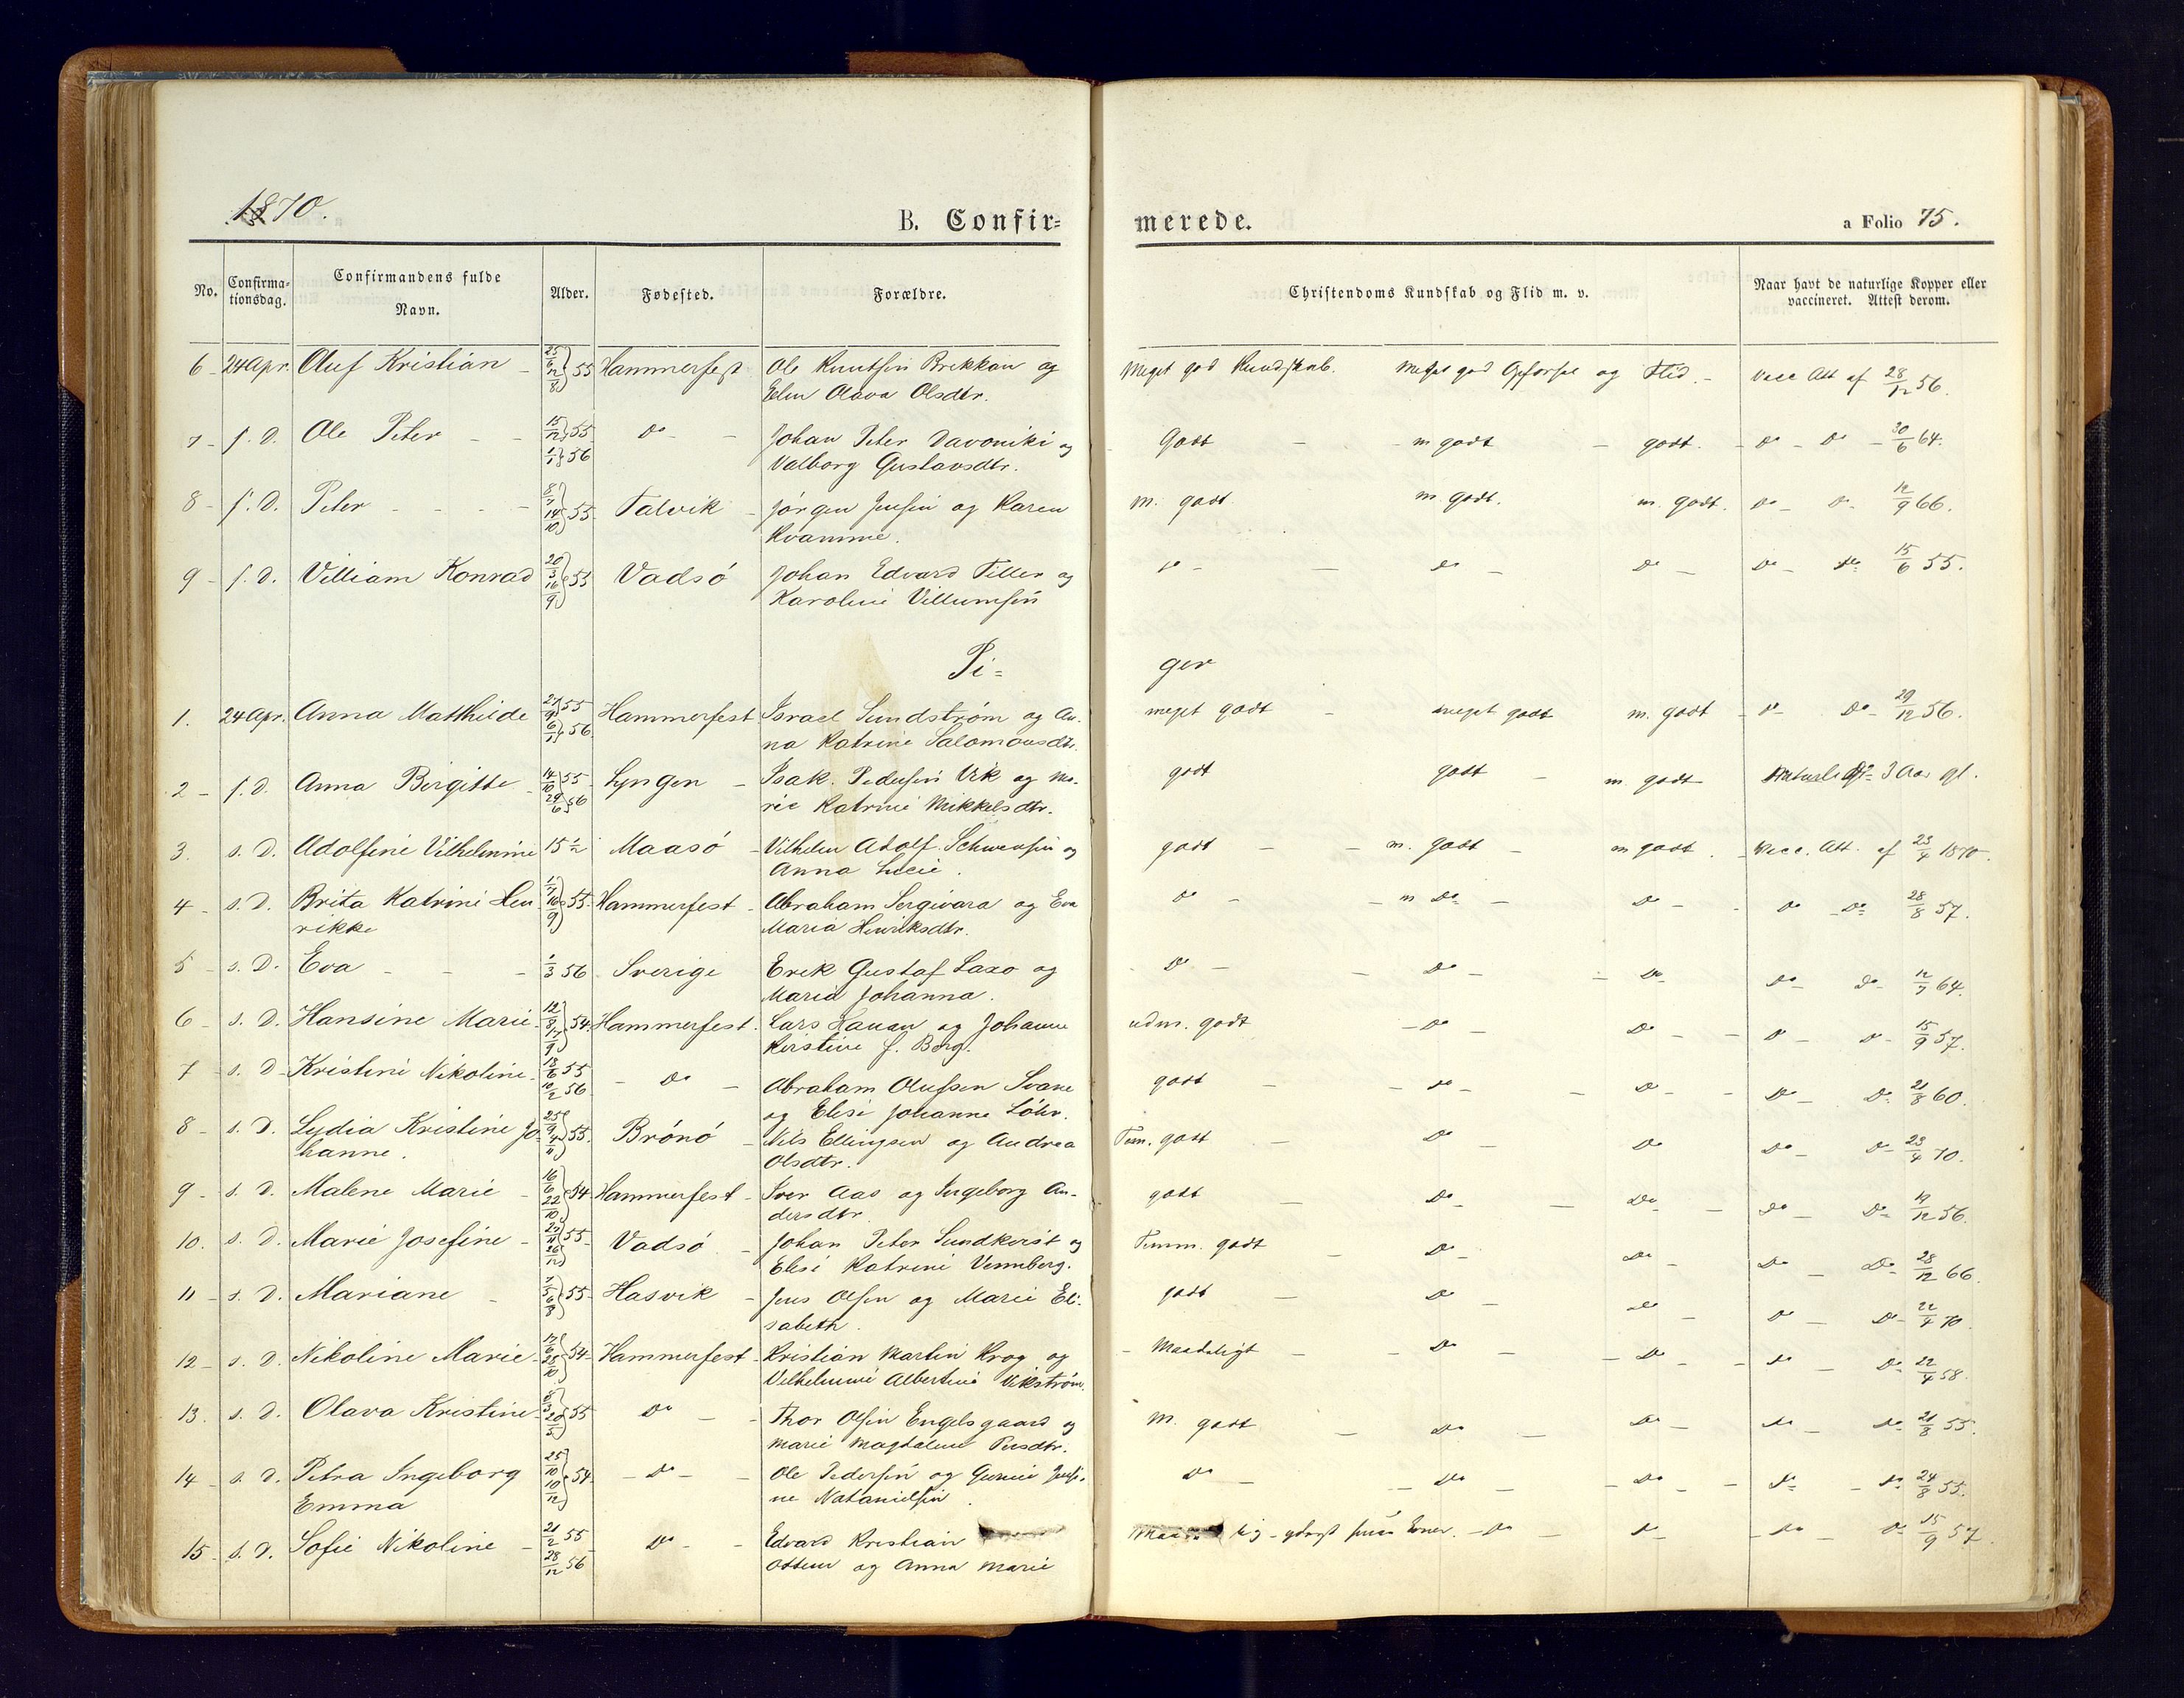 1870.
B. Confir=
merede.
a Folio 75.
No.
Confirma=
tionsdag.
Confirmandens fulde
Navn.
Alder.
Fødested.
Forældre.
Christendoms Kundskab og Flid m. v.
Naar havt de naturlige Kopper eller
vaccineret. Attest derom.
6 - 24 Apr. Oluf Kristian - 25/6 12/8 } 55 Hammerfest Ole Knutsen Brekkan og Meget god Kundskab. Meget god Opførsel og Flid. - Vacc. Att af 28/12 56.
Elen Olava Olsdtr.
7 - s. D. Ole Peter - - 15/12 } 55 1/1 } 56 Do - - Johan Peter Davoniki og Godt - m godt - godt. - Do - Do - 30/6 64.
Valborg Gustavsdtr.
8 - s. D. Peter - - - 8/7 14/10 } 55 Talvik - Jørgen Jensen og Karen m. godt m. godt. m. godt. Do - Do - 12/9 66.
Kvamme.
9 - s. D. Villiam Konrad 20/3 16/9 } 55 Vadsø Johan Edvard Tiller og Do - - Do - Do - Do - Do 15/6 55.
Karoline Villumsen
Pi=
ger
1. 24 Apr. Anna Mathilde 55 6/1 } 56 Hammerfest Israel Sundstrøm og An- meget godt - meget godt m. godt - Do - Do - 29/12 56.
na Katrine Salomonsdtr.
2 - s. D. Anna Birgitte - 14/10 } 55 29/6 } 56 Lyngen - Isak Pedersen Vik og Ma- godt godt - m. godt 3 Aar gl.
rie Katrine Mikkelsdtr.
3. s. D. Adolfine Vilhelmine 15 1/2 Maasø - Vilhelm Adolf Schwensen og godt - - m. godt - m godt. - Vacc. Att. af 23/4 1870.
Anna Lucie.
4 - s. D. Brita Katrine Hen- 1/7 16/9 } 55 Hammerfest - Abraham Sergivara og Eva Do - - m Do - Do - - Do - Do 28/8 57.
rikke Maria Henriksdtr.
5 - s. D. Eva - - - 1/3 56 Sverige Erik Gustaf Laxo og Do - - Do - - Do Do - Do - 12/7 64.
Maria Johanna.
6 - s. D. Hansine Marie - 54 Hammerfest. Lars Hauan og Johanne udm. godt - Do - Do - - Do - Do - 15/9 57.
Kirstine f. Berg.
7 - s. D - Kristine Nikoline - 13/6 55 10/2 56 - Do - Abraham Olufsen Svane godt - - Do - - Do - - Do - Do - 21/8 60.
og Elise Johanne Løhr.
8 - s. D. Lydia Kristine Jo- 25/9 4/11 } 55. Brønø - Nils Ellingsen og Andrea Tem. godt - Do - Do Do - Do - 23/4 70.
hanne. Olsdtr.
9 - s. D. Malene Marie - 16/6 22/10 } 54 Hammerfest - Iver Aas og Ingeborg An- godt - Do - - Do - - Do - Do - 19/12 56.
dersdtr.
10. s. D. Marie Josefine - 55 Vadsø - Johan Peter Sundkvist og Temm. godt - Do - Do - Do - Do - 28/12 66.
Elise Katrine Vennberg.
11 - s. D. Mariane - 55 - Hasvik - Jens Olsen og Marie Eli- godt - Do - Do - Do - Do - 22/4 70.
sabeth.
12 - s. D. Nikoline Marie - 28/10 } 54 - Hammerfest - Kristian Martin Krog og - Maadeligt - - Do - - Do - - Do - Do - 22/4 58.
Vilhelmine Albertine Vikstrøm.
13. s. D. Olava Kristine - 55 Do - - Thor Olsen Engelsgaard og M. godt - Do - Do - Do - Do - 21/8 55.
Marie Magdalene Persdtr.
14 - s. D. Petra Ingeborg 25/10 10/12 } 54 - Do - - Ole Pedersen og Gurine Do - - Do - - Do - - Do - Do 24/8 55.
Emma ne Natanielsen.
15 - s. D. Sofie Nikoline - 21/2 55 28/12 56 Do - - Edvard Kristian Evner. - Do - Do - - Do - Do - 15/9 57.
Ottem og Anna Marie